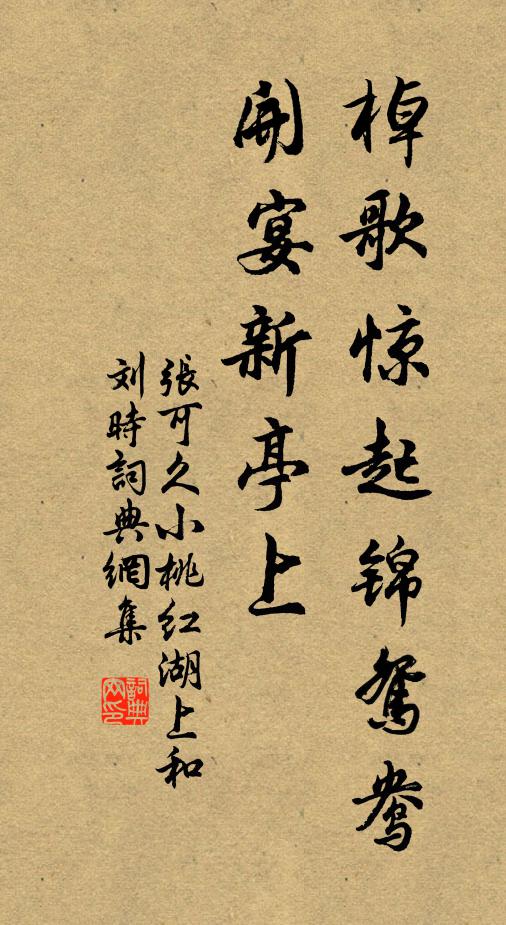 棹歌惊起锦鸳鸯
開宴新亭上
張可久小桃红湖上和
刘時詞典網集
詞典网印